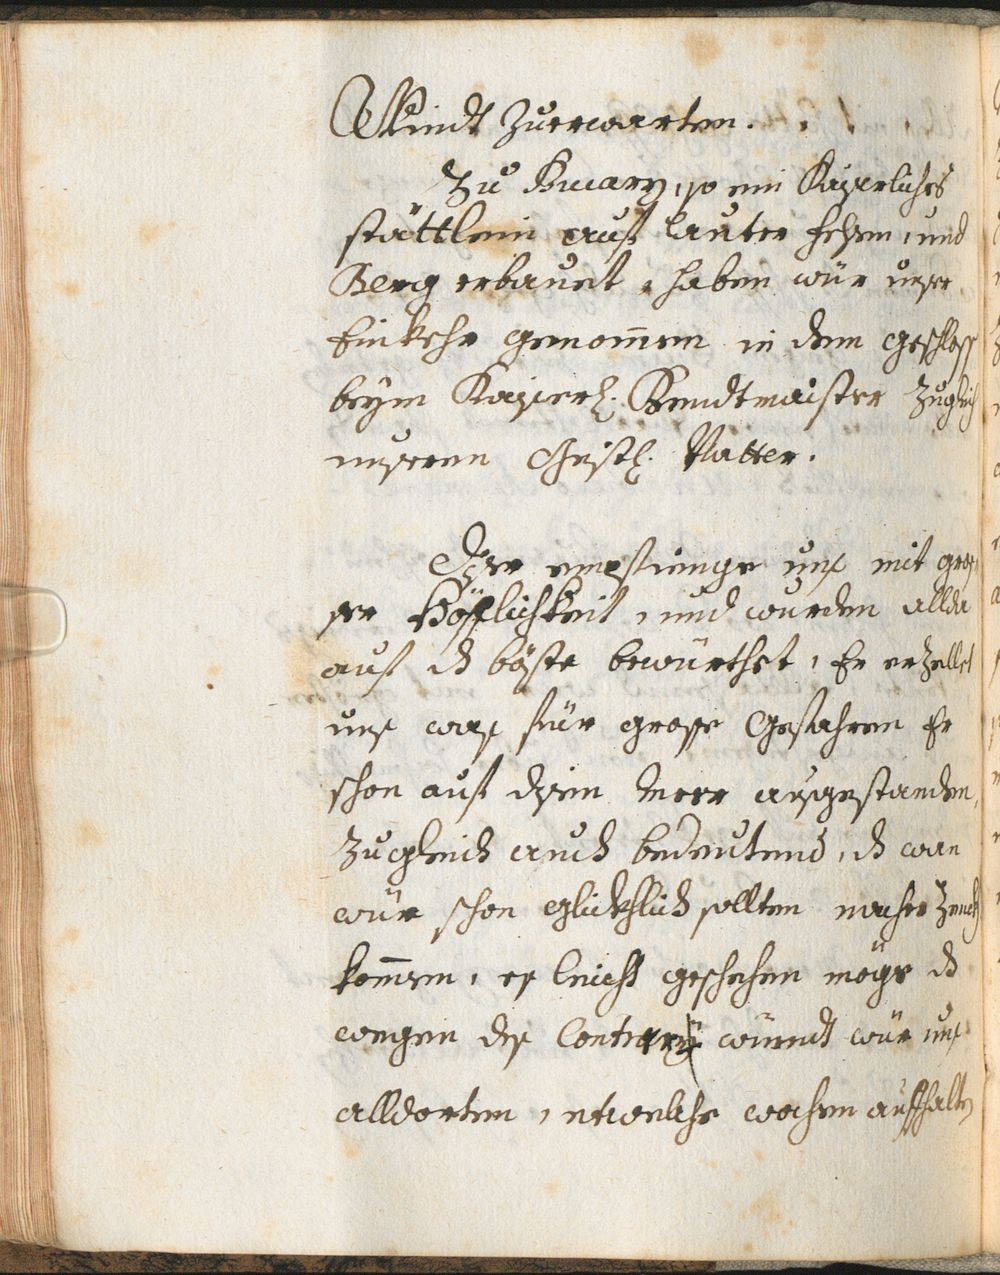 Windt zuerwarten.
Zu Buccary, so ein Kayserliches
stättlein auß lauter felsen, und
Berg erbauet, haben wür unser
Einkehr genom̄en in dem geschloss
beym Kayserl. Rendtmaister zugleich
unseren Geistl. Vatter.
Diser empfienge uns mit gros-
ser Höfflichkeit, und wurden allda
auf dz böste bewürthet, Er erzellet
uns was für grosse Gefahren Er
schon auf disem Meer ausgestanden,
zugleich auch bedeutend, dz wan
wür schon glickhlich sollten nacher Zeng
kom̄en, es leicht geschehen möge dz
wegen des Contrary windt wür uns
alldorten, etweliche wochen auffhalten